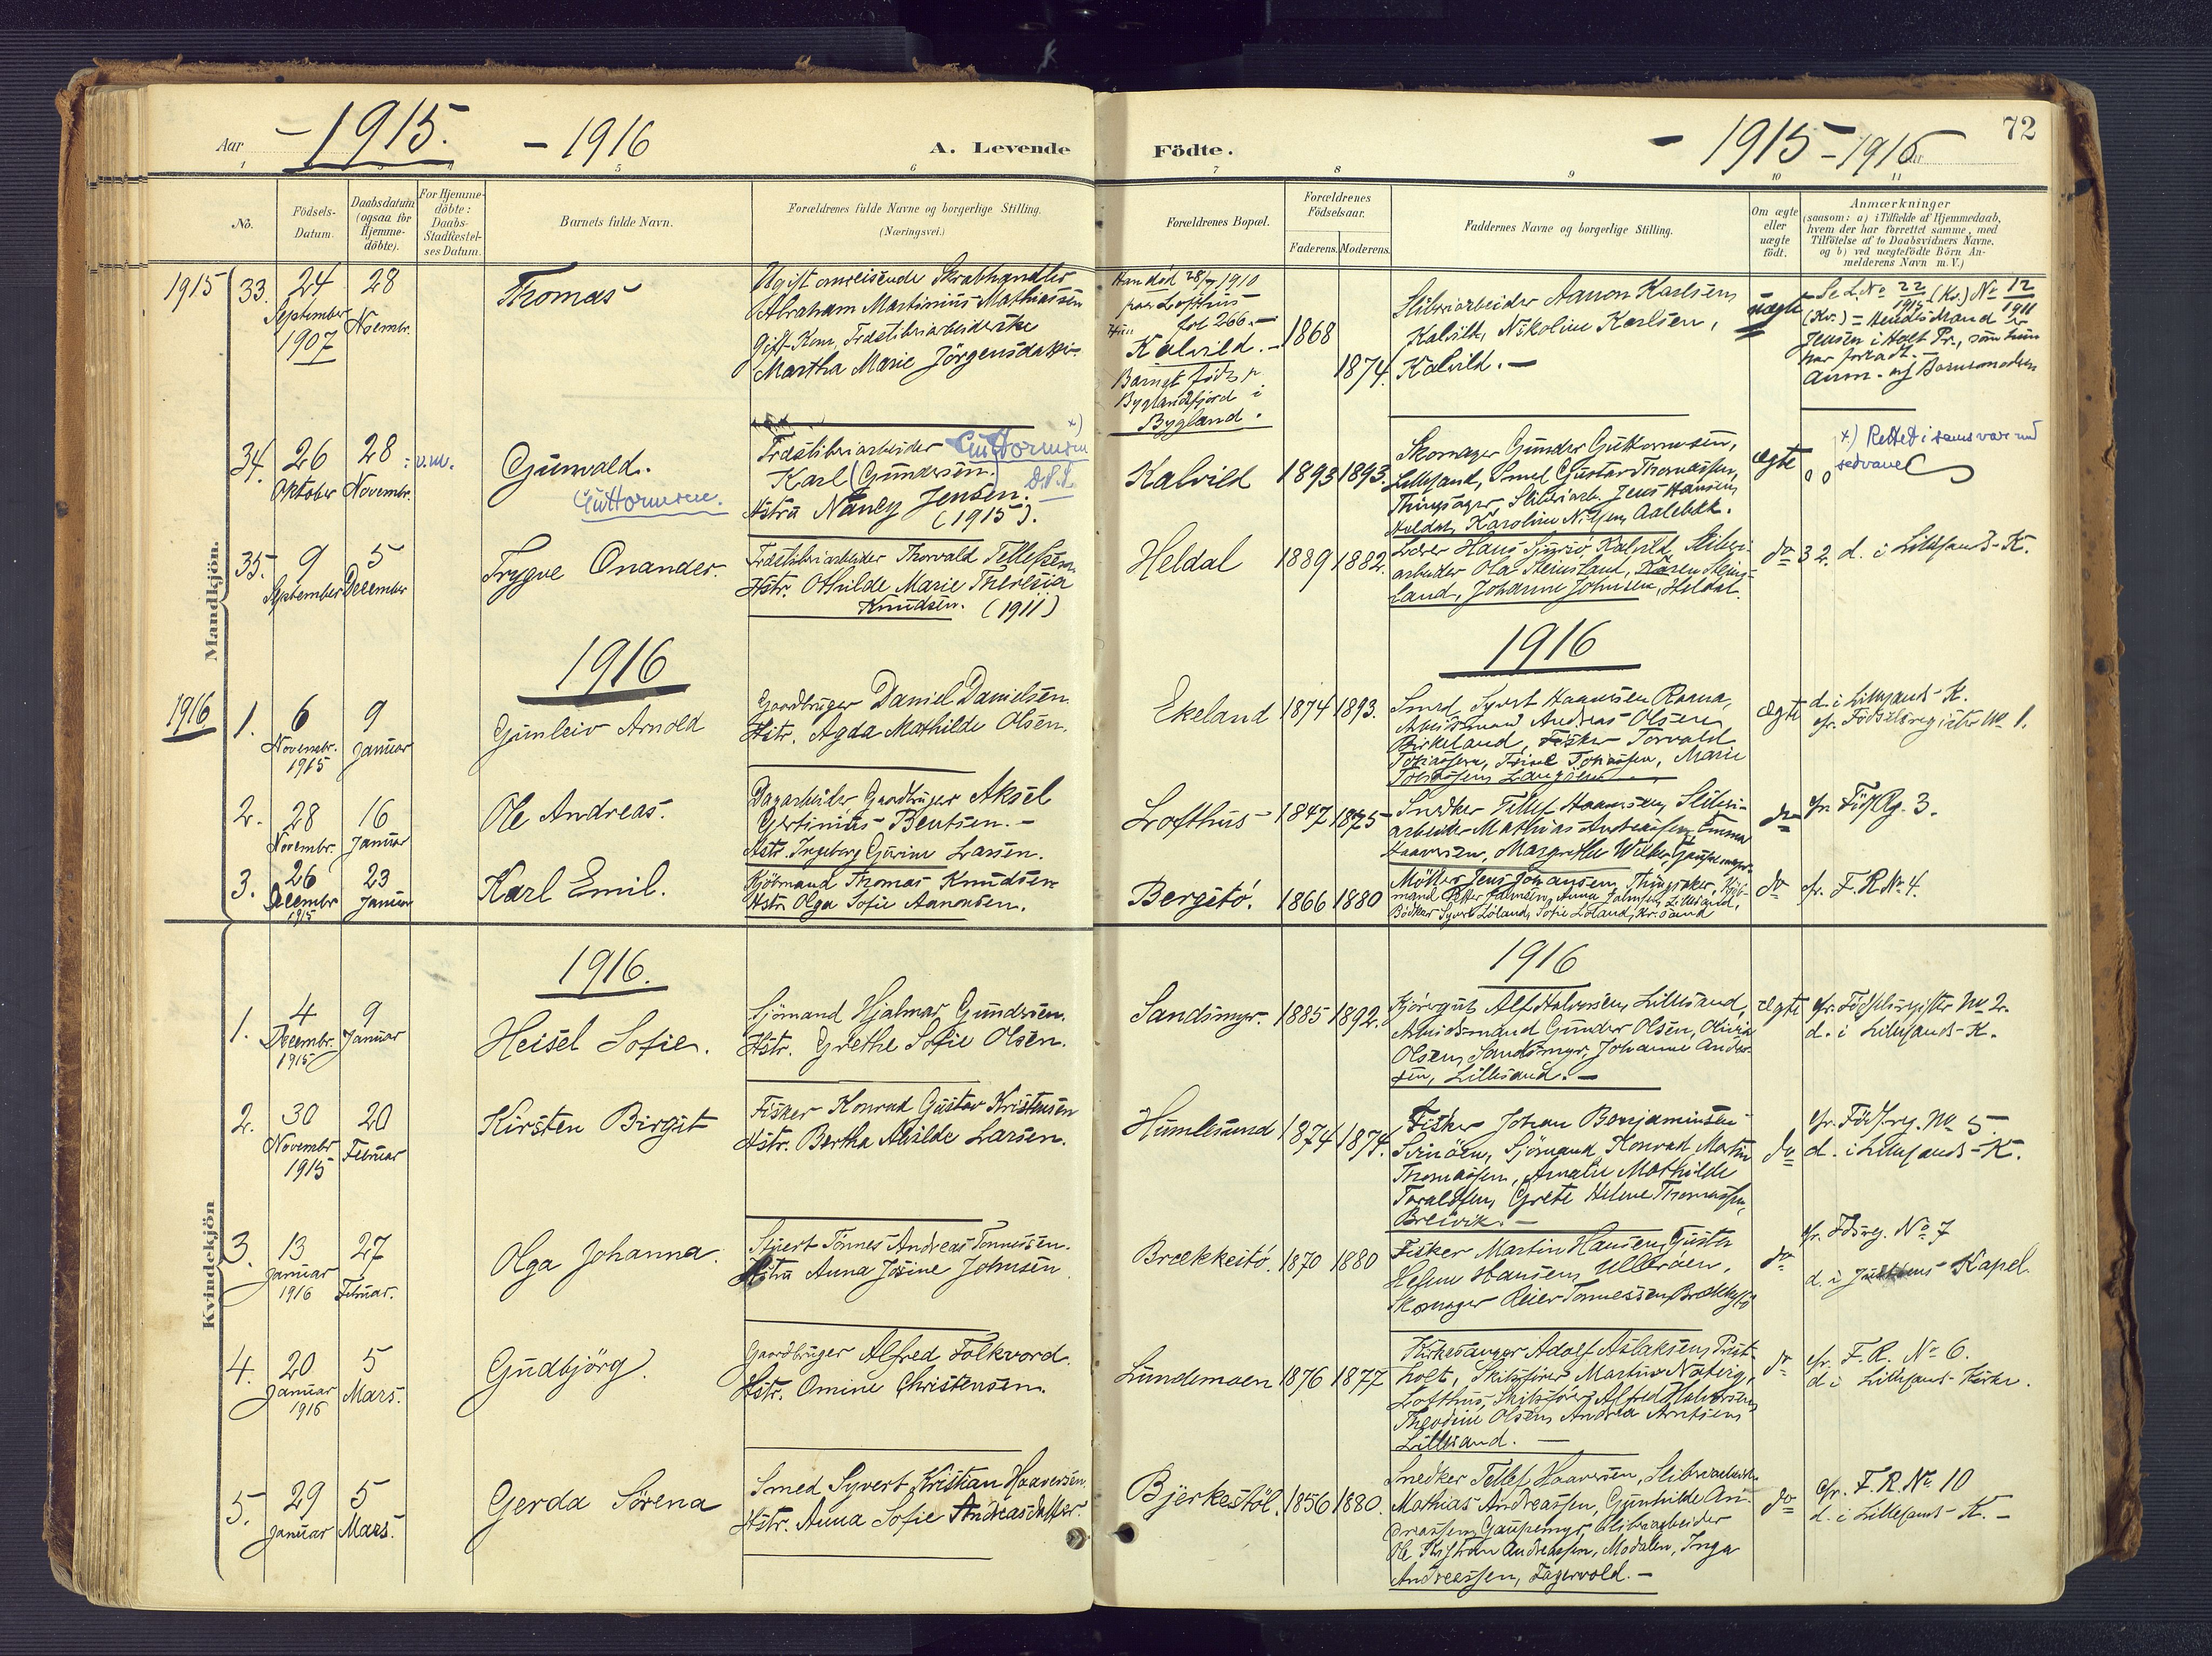 Aar - 1915. - 1916
A. Levende
Födte.
- 1915 - 1916
72
1 5 6 7 8 9 10 11
No.
Födsels-
Datum.
Daabsdatum
(ogsaa for
Hjemme-
döbte).
For Hjemme-
döbte:
Daabs-
Stadfæstel-
ses Datum.
Barnets fulde Navn.
Forældrenes fulde Navne og borgerlige Stilling.
(Næringsvei.)
Forældrenes Bopæl.
Forældrenes
Födselsaar.
Faderens. Moderens.
Faddernes Navne og borgerlige Stilling.
Om ægte
eller
uægte
födt.
Anmærkninger
(saasom: a) i Tilfælde af Hjemmedaab,
hvem der har forrettet samme, med
Tilföielse af to Daabsvidners Navne.
og b) ved uægtefödte Börn An-
melderens Navn m. V.)
Mandkjön.
1915 33. 24 September 1907
28 Novembr.
Thomas
Ugift omreisende Skrabhandler
Abraham Martinius Mathiassen
Gift Kone, Træsliberiarbeiderske
Martha Marie Jörgensdatter
Han död 28/ 1910
paa Lofthus
Hun fol 266.
Kalvild.
Barnet födt p.
Byglandsfjord i
Bygland.
1868
1874.
Sliberiarbeider Aanon Karlsen,
Kalvild, Nikoline Karlsen,
Kalvild.
uægte
Se L. No 22 1915 (Kv.) No 12 1911
(Kv.) = Jensen i Holt Pr., som hun
har forladt.
Anm. af Barnemoderen
34. 26 Oktober
28 Novembr.
: u.m.
Gunvald.
Guttormsen.
Træsliberiarbeider Guttormsen x)
Karl (Gundersen.)
Hstru Nancy Jensen.
(1915).
Kalvild
1893 1893.
Skomager Gunder Guttormsen,
Lillesand, Smed Gustav Thomassen,
Thingsager, Sliberiarb. Jens Hansen,
Heldal, Karoline Nilsen, Aalebæk.
ægte
0 0
x) Rettet i samsvar med
sedvane
35. 9 September
5 December
Trygve Onander.
Træsliberiarbeider Thorvald Tellefsen
Hstr. Othilde Marie Theresia
Knudsen. (1911)
Heldal
1889 1882.
Lærer Hans Kalvild, Sliberi-
arbeider Ola Steinsland, Karen Steins-
land, Johanne Johnsen, Heldal.
do 32. d. i Lillesands-K.
1916
1916
1916 1. 6 Novembr. 1915
9 Januar
Gunleiv Arnold
Gaardbruger Daniel Danielsen
Hstr. Agda Mathilde Olsen.
Ekeland
1874 1893.
Smed Syvert Haaversen Raana,
Arbeidsmand Andreas Olsen
Birkeland, Fisker Torvald
Tobiassen, Trine Tobiassen, Marie
Tobiassen, Langöen
ægte
d. i Lillesands-K.
cfr. Födselsregister No 1.
2. 28 Novembr.
16 Januar
Ole Andreas.
Dagarbeider Gaardbruger Aksel
Gertinius Bentsen.
Hstr. Ingeborg Gurine Larsen.
Lofthus
1847 1875
Snedker Tellef Haaversen, Sliberi-
arbeider Mathias Andreassen, Emma
Haaversen, Margrethe Wilke, Gaupemyr.
do
cfr. Föds. Rg. 3.
3. 26 Decembr 1915
23 Januar
Karl Emil.
Sjömand Thomas Knudsen
Hstr. Olga Sofie Aanonsen.
Bergstö.
1866 1880
Möller Jens Johansen, Thingsaker, Sjö-
mand Petter Salvesen, Anna Salvesen, Lillesand,
Bödker Syvert Löland, Sofie Löland, Kr.sand
do
cfr. F. R No 4.
Kvindekjön
1916.
1916
1. 4 Decembr. 1915
9 Januar
Heisel Sofie.
Sjömand Hjalmar Gundersen.
Hstr. Grethe Sofie Olsen.
Sandsmyr.
1885 1892.
Kjöregut Alf Halvorsen, Lillesand,
Arbeidsmand Gunder Olsen, Olivia
Olsen, Sandsmyr, Johanne Ander-
sen, Lillesand.
ægte
cfr. Födselsregister No 2.
d. i Lillesands-K.
2. 30 Novembr 1915
20 Februar
Kirsten Birgit
Fisker Konrad Gustav Kristensen
Hstr. Bertha Alvilde Larsen.
Humlesund
1874 1874.
Fisker Johan Benjaminsen
Svinöen, Sjömand Konrad Martin
Thomassen, Amalie Mathilde
Toraldsen, Grete Helene Thomassen,
Breivik.
do
cfr. Födsreg. No 5.
d. i Lillesands-K.
3. 13 Januar 1916
27 Februar.
Olga Johanna.
Stuert Tönnes Andreas Tönnessen.
Hstru Anna Josine Johnsen
Brækkestö.
1870 1880
Fisker Martin Hansen, Gusta
Helene Hansen, Ulleröen,
Skomager Reier Tönnessen, Brækkestö
do
cfr. Fdsreg. No 7
d. i Kapel.
4. 20 Januar 1916
5 Mars.
Gudbjörg.
Gaardbruger Alfred Folkvord.
Hstr. Omine Christensen.
Lundemoen
1876 1877
Kirkesanger Adolf Aslaksen, Prest-
holt, Skibsförer Martin Naberg,
Lofthus, Skibsförer Alfred Halvorsen,
Theodine Olsen, Andrea Arntsen
Lillesand.
do
cfr. F. R. No 6.
d i Lillesands-Kirke.
5. 29 Januar
5 Mars.
Gerda Sörena
Smed Syvert Kristian Haaversen.
Hstr. Anna Sofie Andreasdatter.
Bjerkestöl.
1856 1880.
Snedker Tellef Haaversen, Sliberiarbeider
Mathias Andreassen, Gunhilde An-
dreassen, Gaupemyr, Sliberiarbeider
Ole Kristian Andreassen, Modalen, Inga
Andreassen, Fagervold.
do
cfr. F. R. No 10
d. i Lillesands-K.